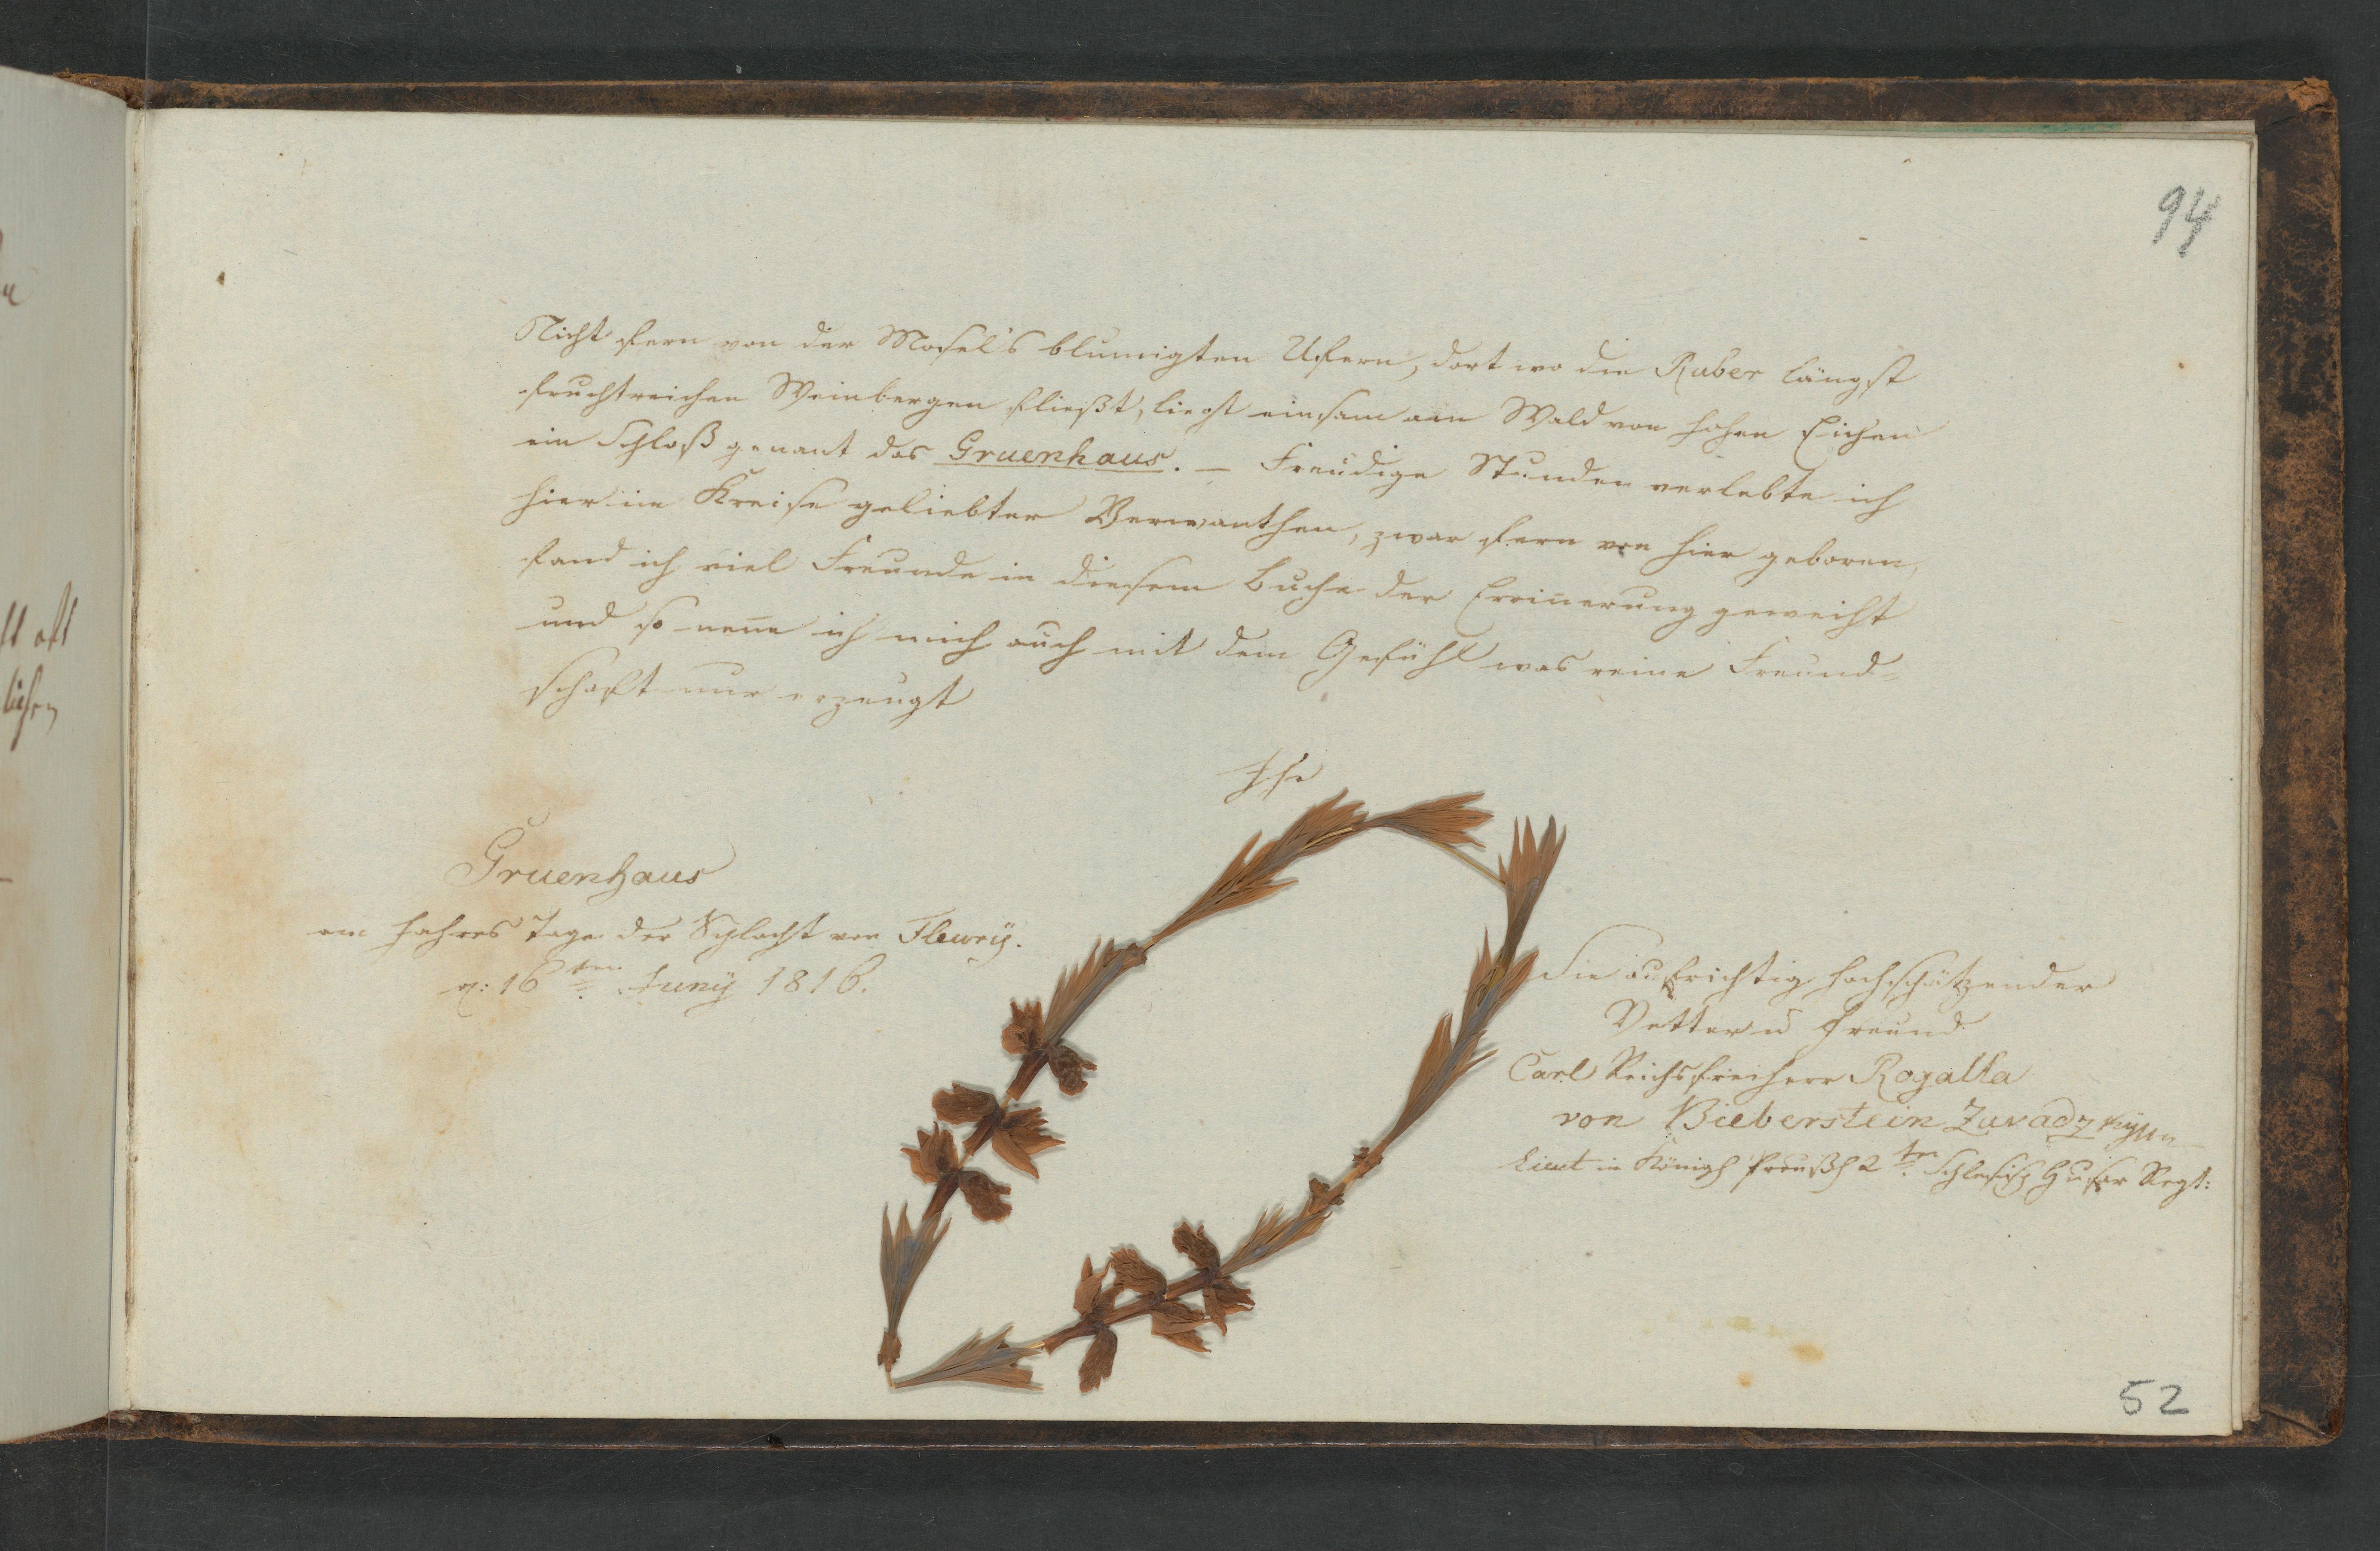 94
Nicht fern von der Mosel's blumigten Ufern, dort wo die Ruber längst
fruchtreichen Weinbergen fließt, liegt einsam am Wald von hohen Eichen
ein Schloß genant das Gruenhaus. – Freudige Stunden verlebte ich
hier im Kreise geliebter Verwanthen, zwar fern von hier geboren,
fand ich viel Freunde in diesem Buche der Errinerung geweiht
und so nen̄e ich mich auch mit dem Gefühl was reine Freund=
schaft nur erzeugt
Ihr
Gruenhaus
am Jahres Tage der Schlacht von Fleurÿ.
d: 16ten Junÿ 1816.
Sie aufrichtig hochschätzender
Vetter u Freund
Carl Reichsfreiherr Rogalla
von Bieberstein
Lieut im Königl Preußl 2ten Schlesisch Husar Regt:
52